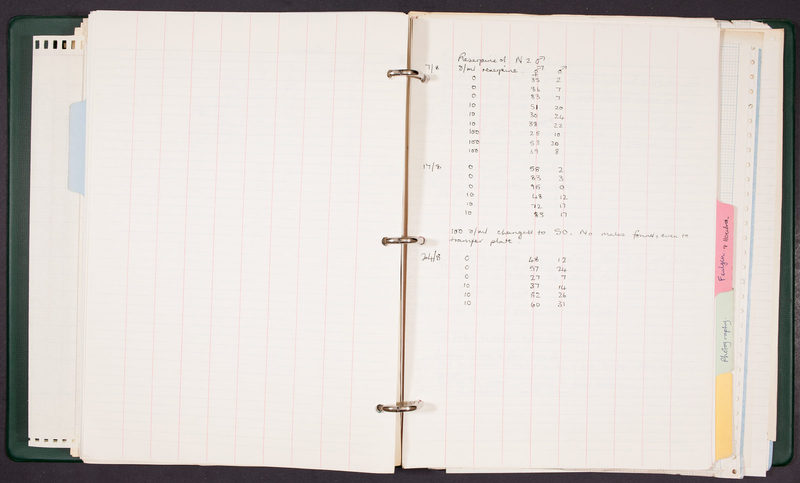 Reserpine of N2 ♂
7/8 γ/ml reserpine ⚥ ♂
0 35 2
0 36 7
0 83 7
10 51 20
10 30 24
10 38 22
100 25 10
100 53 20
100 19 8
17/8 0 58 2
0 83 3
0 98 0
10 48 12
10 72 17
10 83 17
100 γ/ml changed to 50. No males found, even to
transfer plate
24/8 0 48 12
0 57 24
0 27 7
10 37 14
10 62 26
10 60 31
Feulgen &
Photography